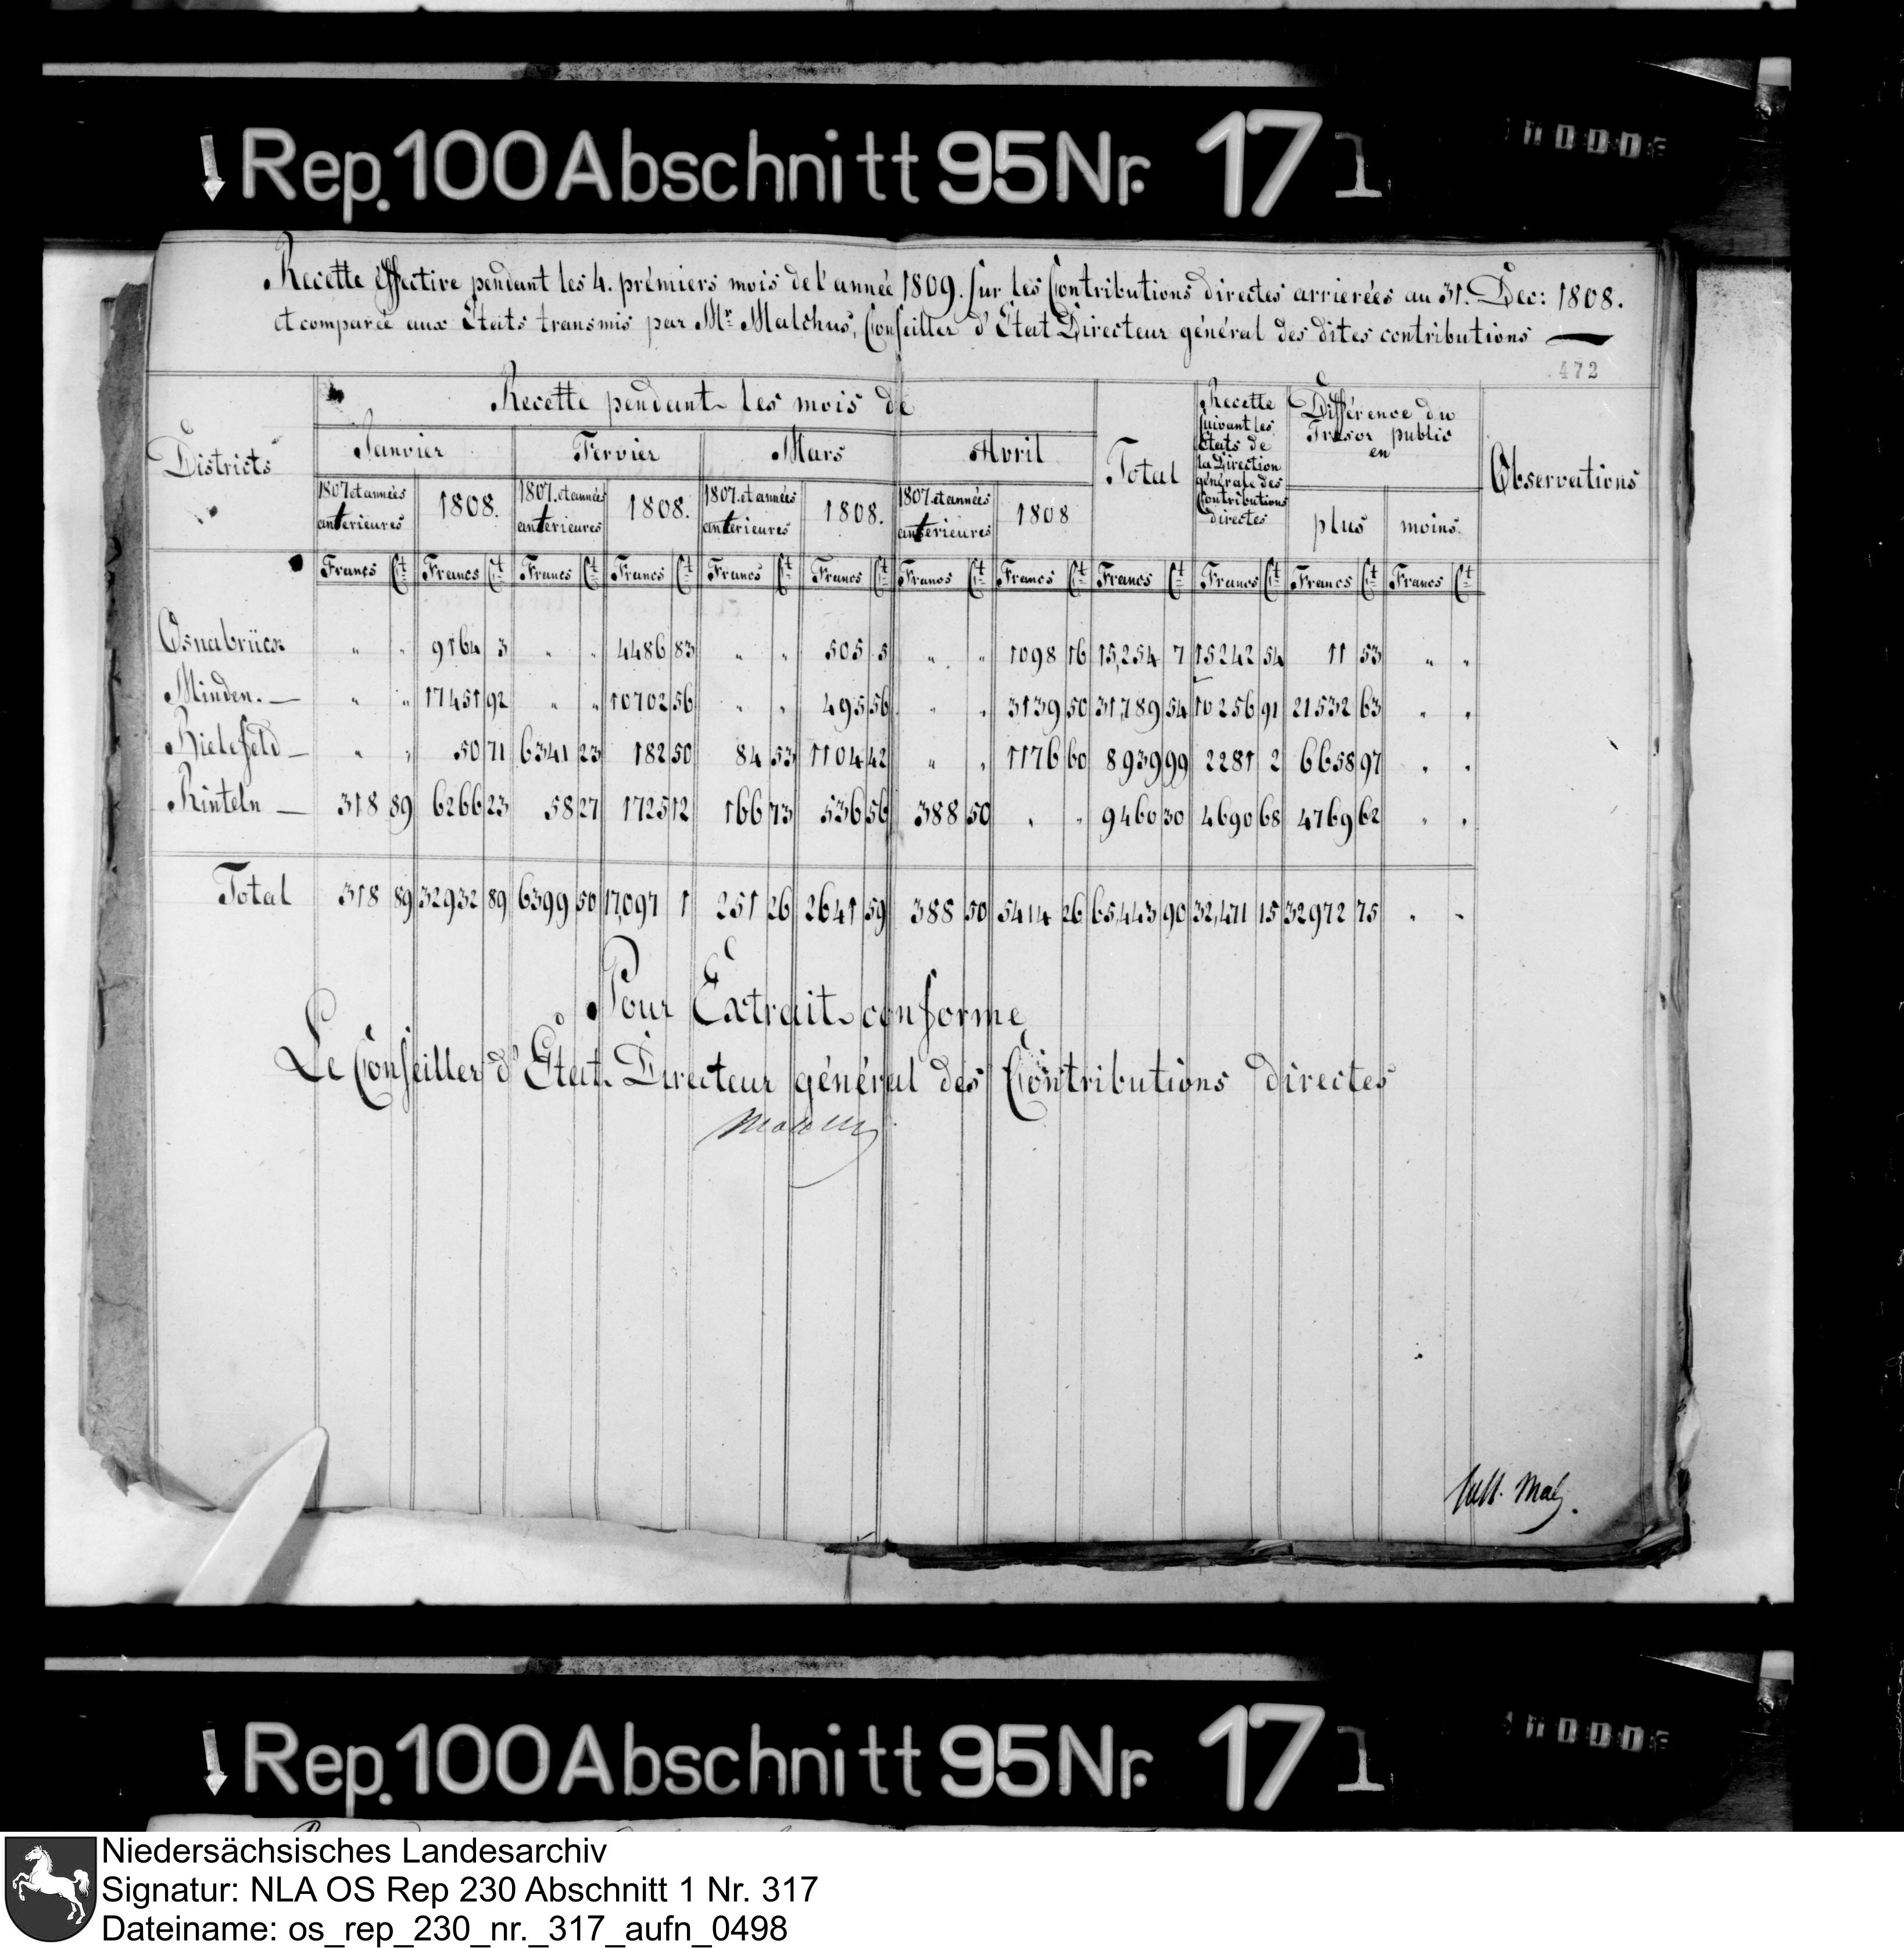 Rep. 100 Abschnitt 95 Nr. 171
Recette éffective pendant les 4. prémiers mois de l'année 1809. sur les Contributions directes arrierées au 31. Dec: 1808.
et comparée aux États transmis par Mr. Malchus, Conseiller d'État Directeur général des dites contributions —
472
Districts
Recette pendant les mois de
Janvier
Fervier
Mars
Avril
Total
Recette
suivant les
états de
la Direction
générale des
Contributions
directes
Différence du
Trésor public
en
Observations
1807 et années
anterieures
1808.
1807. et années
anterieures
1808.
1807 et années
anterieures
1808.
1807 et années
anterieures
1808
plus
moins.
Francs Ct Francs Ct Francs Ct Francs Ct Francs Ct Francs Ct Francs Ct Francs Ct Francs Ct Francs Ct Francs Ct Francs Ct
Osnabrück " " 9164 3 " " 4486 83 " " 505 5 " " 1098 16 15,254 7 15242 54 11 53 " "
Minden. — " " 17451 92 " " 10702 56 " " 495 56 " " 3139 50 31,789 54 10256 91 21532 63 " "
Bielefeld — " " 50 71 6341 23 182 50 84 53 1104 42 " " 1176 60 8939 99 2281 2 6658 97 " "
Rinteln — 318 89 6266 23 58 27 1725 12 166 73 536 56 388 50 " " 9460 30 4690 68 4769 62 " "
Total 318 89 32932 89 6399 50 17,097 1 251 26 2641 59 388 50 5414 26 65,443 90 32,471 15 32972 75 " "
Pour Extrait conforme
Le Conseiller d'État Directeur général des Contributions directes
Rep. 100 Abschnitt 95 Nr. 171
Niedersächsisches Landesarchiv
Signatur: NLA OS Rep 230 Abschnitt 1 Nr. 317
Dateiname: os_rep_230_nr._317_aufn_0498